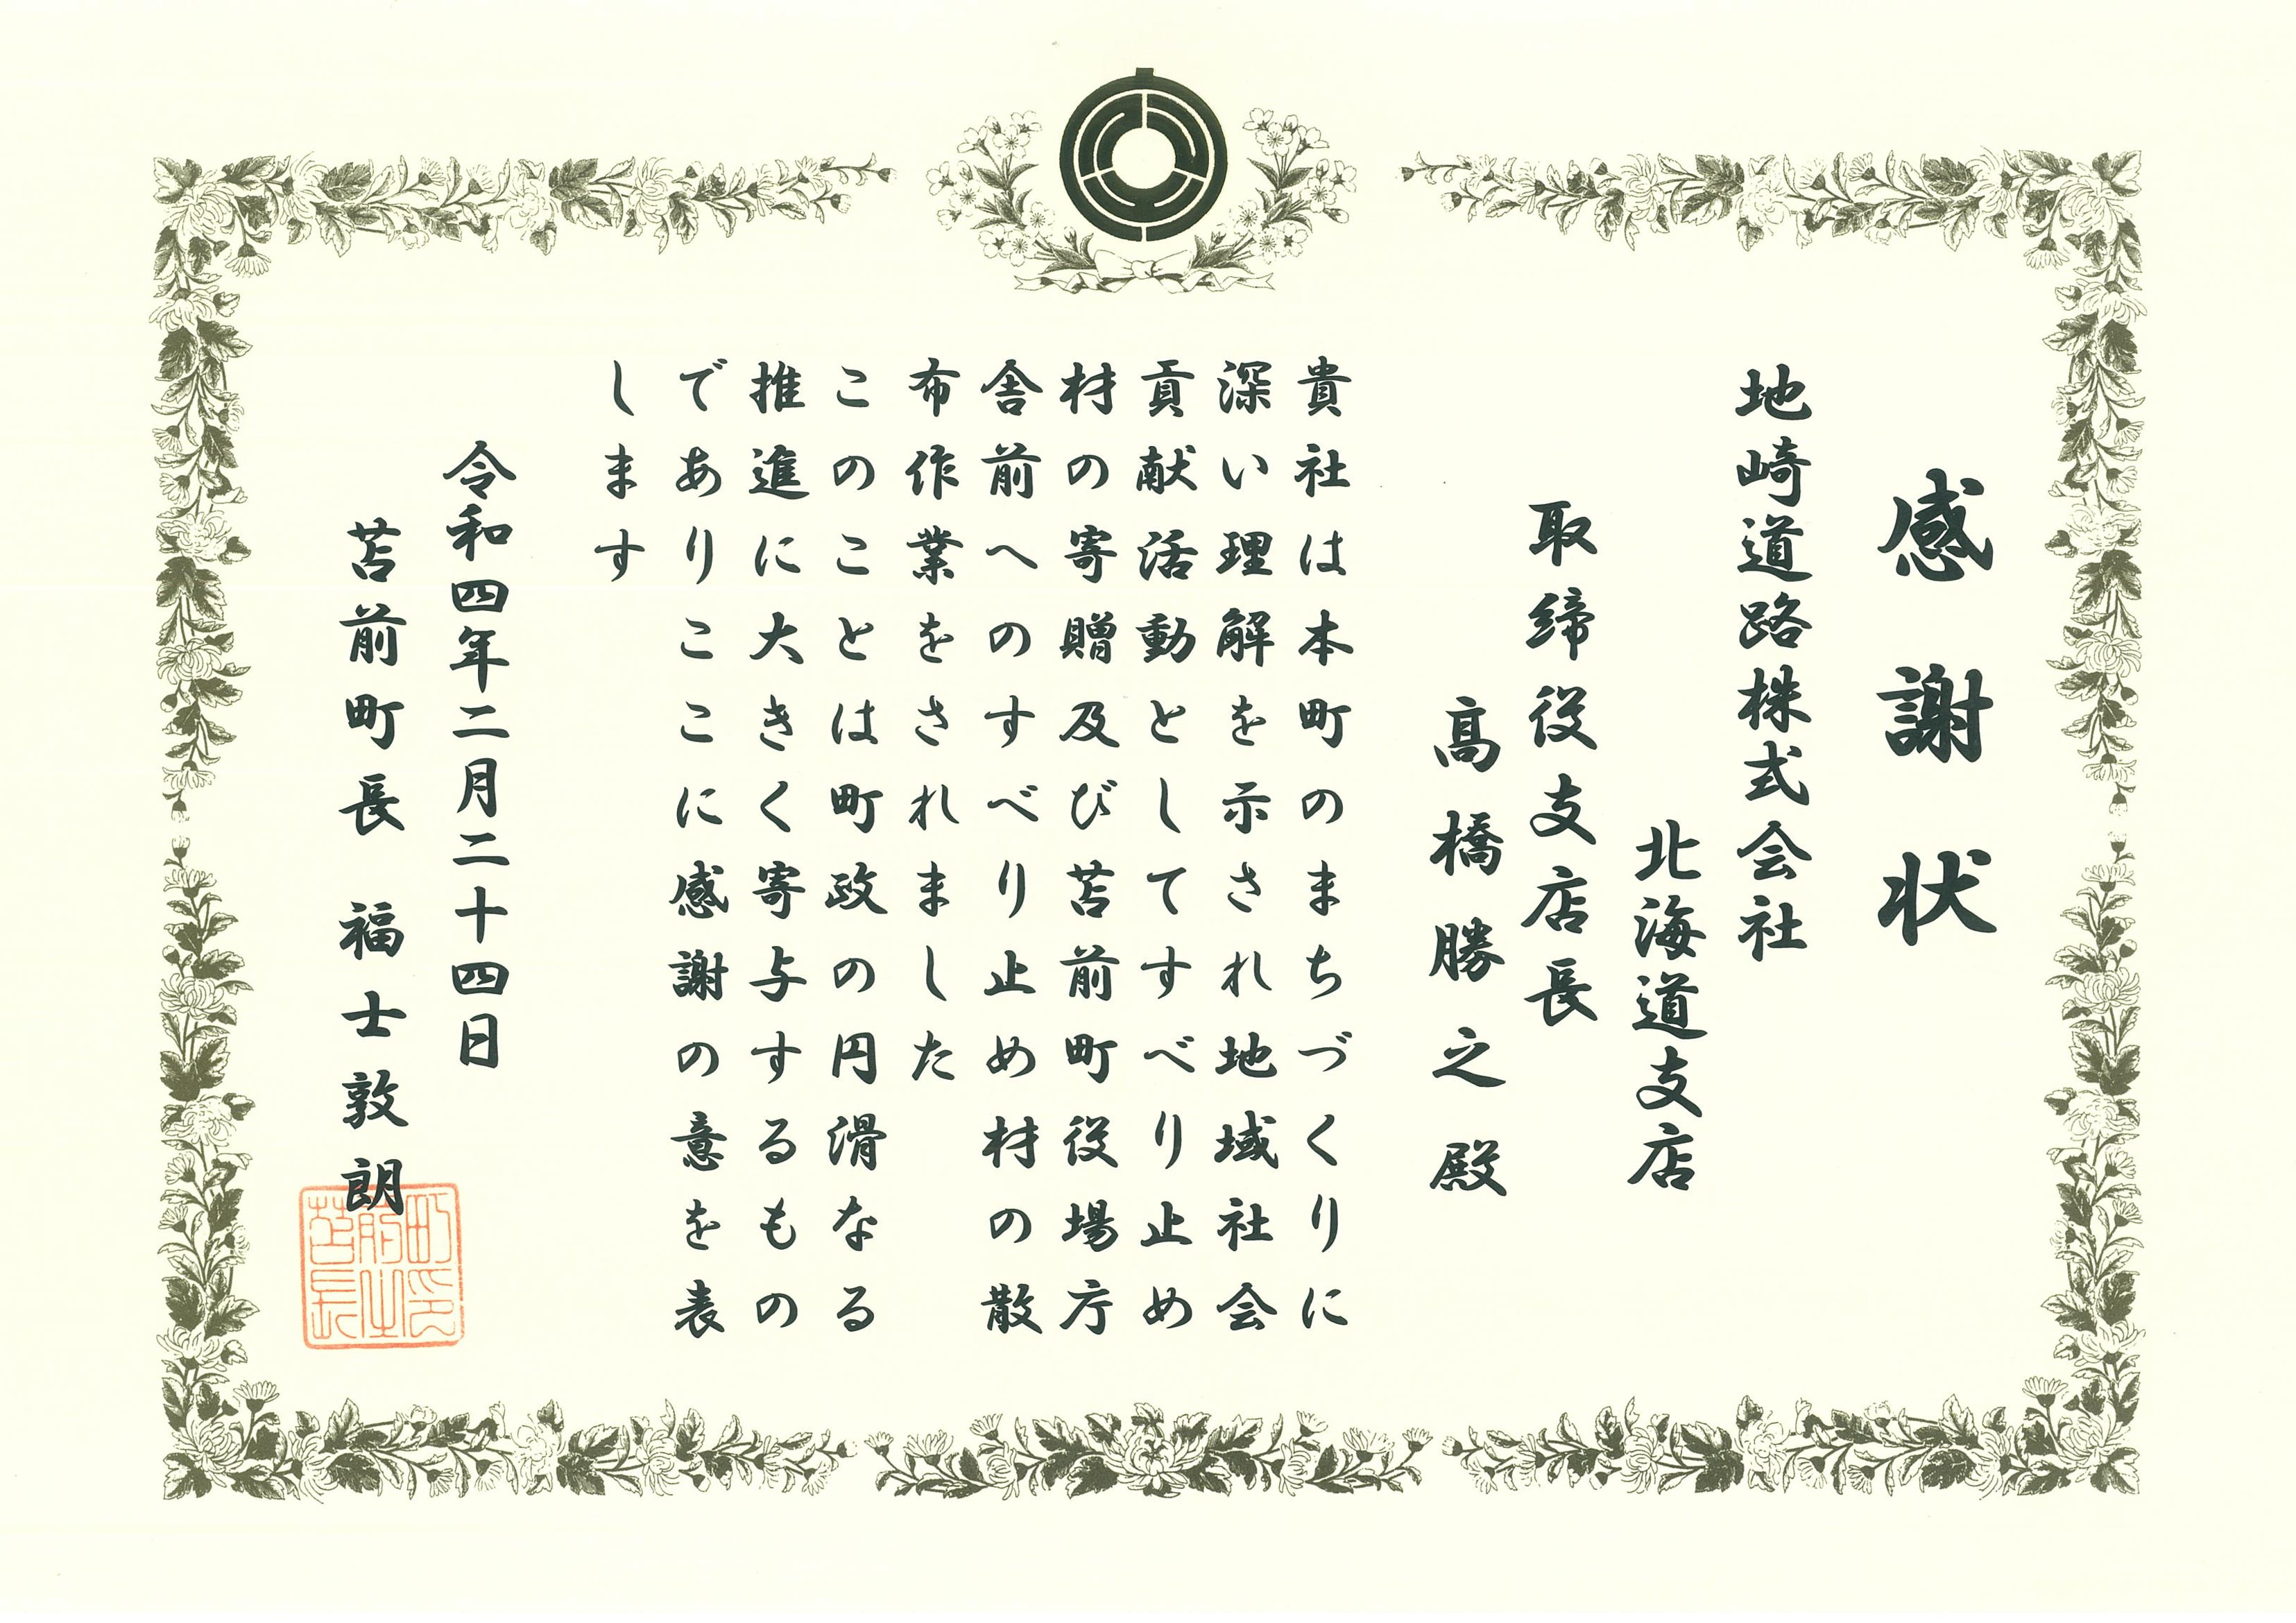 感謝状
地崎道路株式会社
北海道支店
取締役支店長
髙橋勝之殿
貴社は本町のまちづくりに
深い理解を示され地域社会
貢献活動としてすべり止め
材の寄贈及び苫前町役場庁
舎前へのすべり止め材の散
布作業をされました
このことは町政の円滑なる
推進に大きく寄与するもの
でありここに感謝の意を表
します
令和四年二月二十四日
苫前町長 福士敦朗
町印
前之
苫長